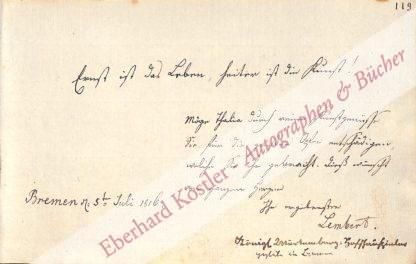 119
Ernst ist das Leben, heiter ist die Kunst!
Möge Thalia durch reine Kunstgenüsse
Sie für die entschädigen,
welche Sie ihr gebracht. Dieß wünscht
Herzen
Bremen d. 5ten Juli 1816
Ihr ergebenster
Lembert.
Königl. Würtemberg. Hofschauspieler
Eberhard Köstler Autographen & Bücher